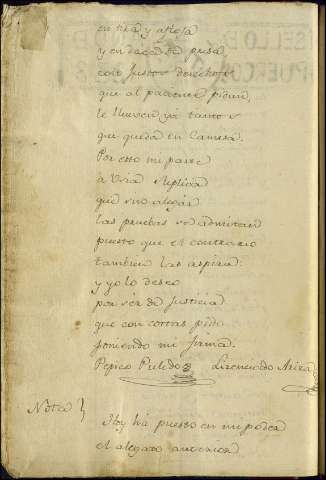 en tira y afloja
y en daca de prisa
con justos derechos
que al parecer piden,
le lleven ya tantos
que queda en camisa.
Por esso mi parte
a Vsia suplica
que sino alegan
las pruebas se admitan
puesto que el contrario
tambien las aspira:
y yo lo deseo
por ser de Justicia
que con costas pido
poniendo mi firma.
Pepico Pulido Licenciado
Nota
Hoy ha puesto en mi poder
el alegato anterior